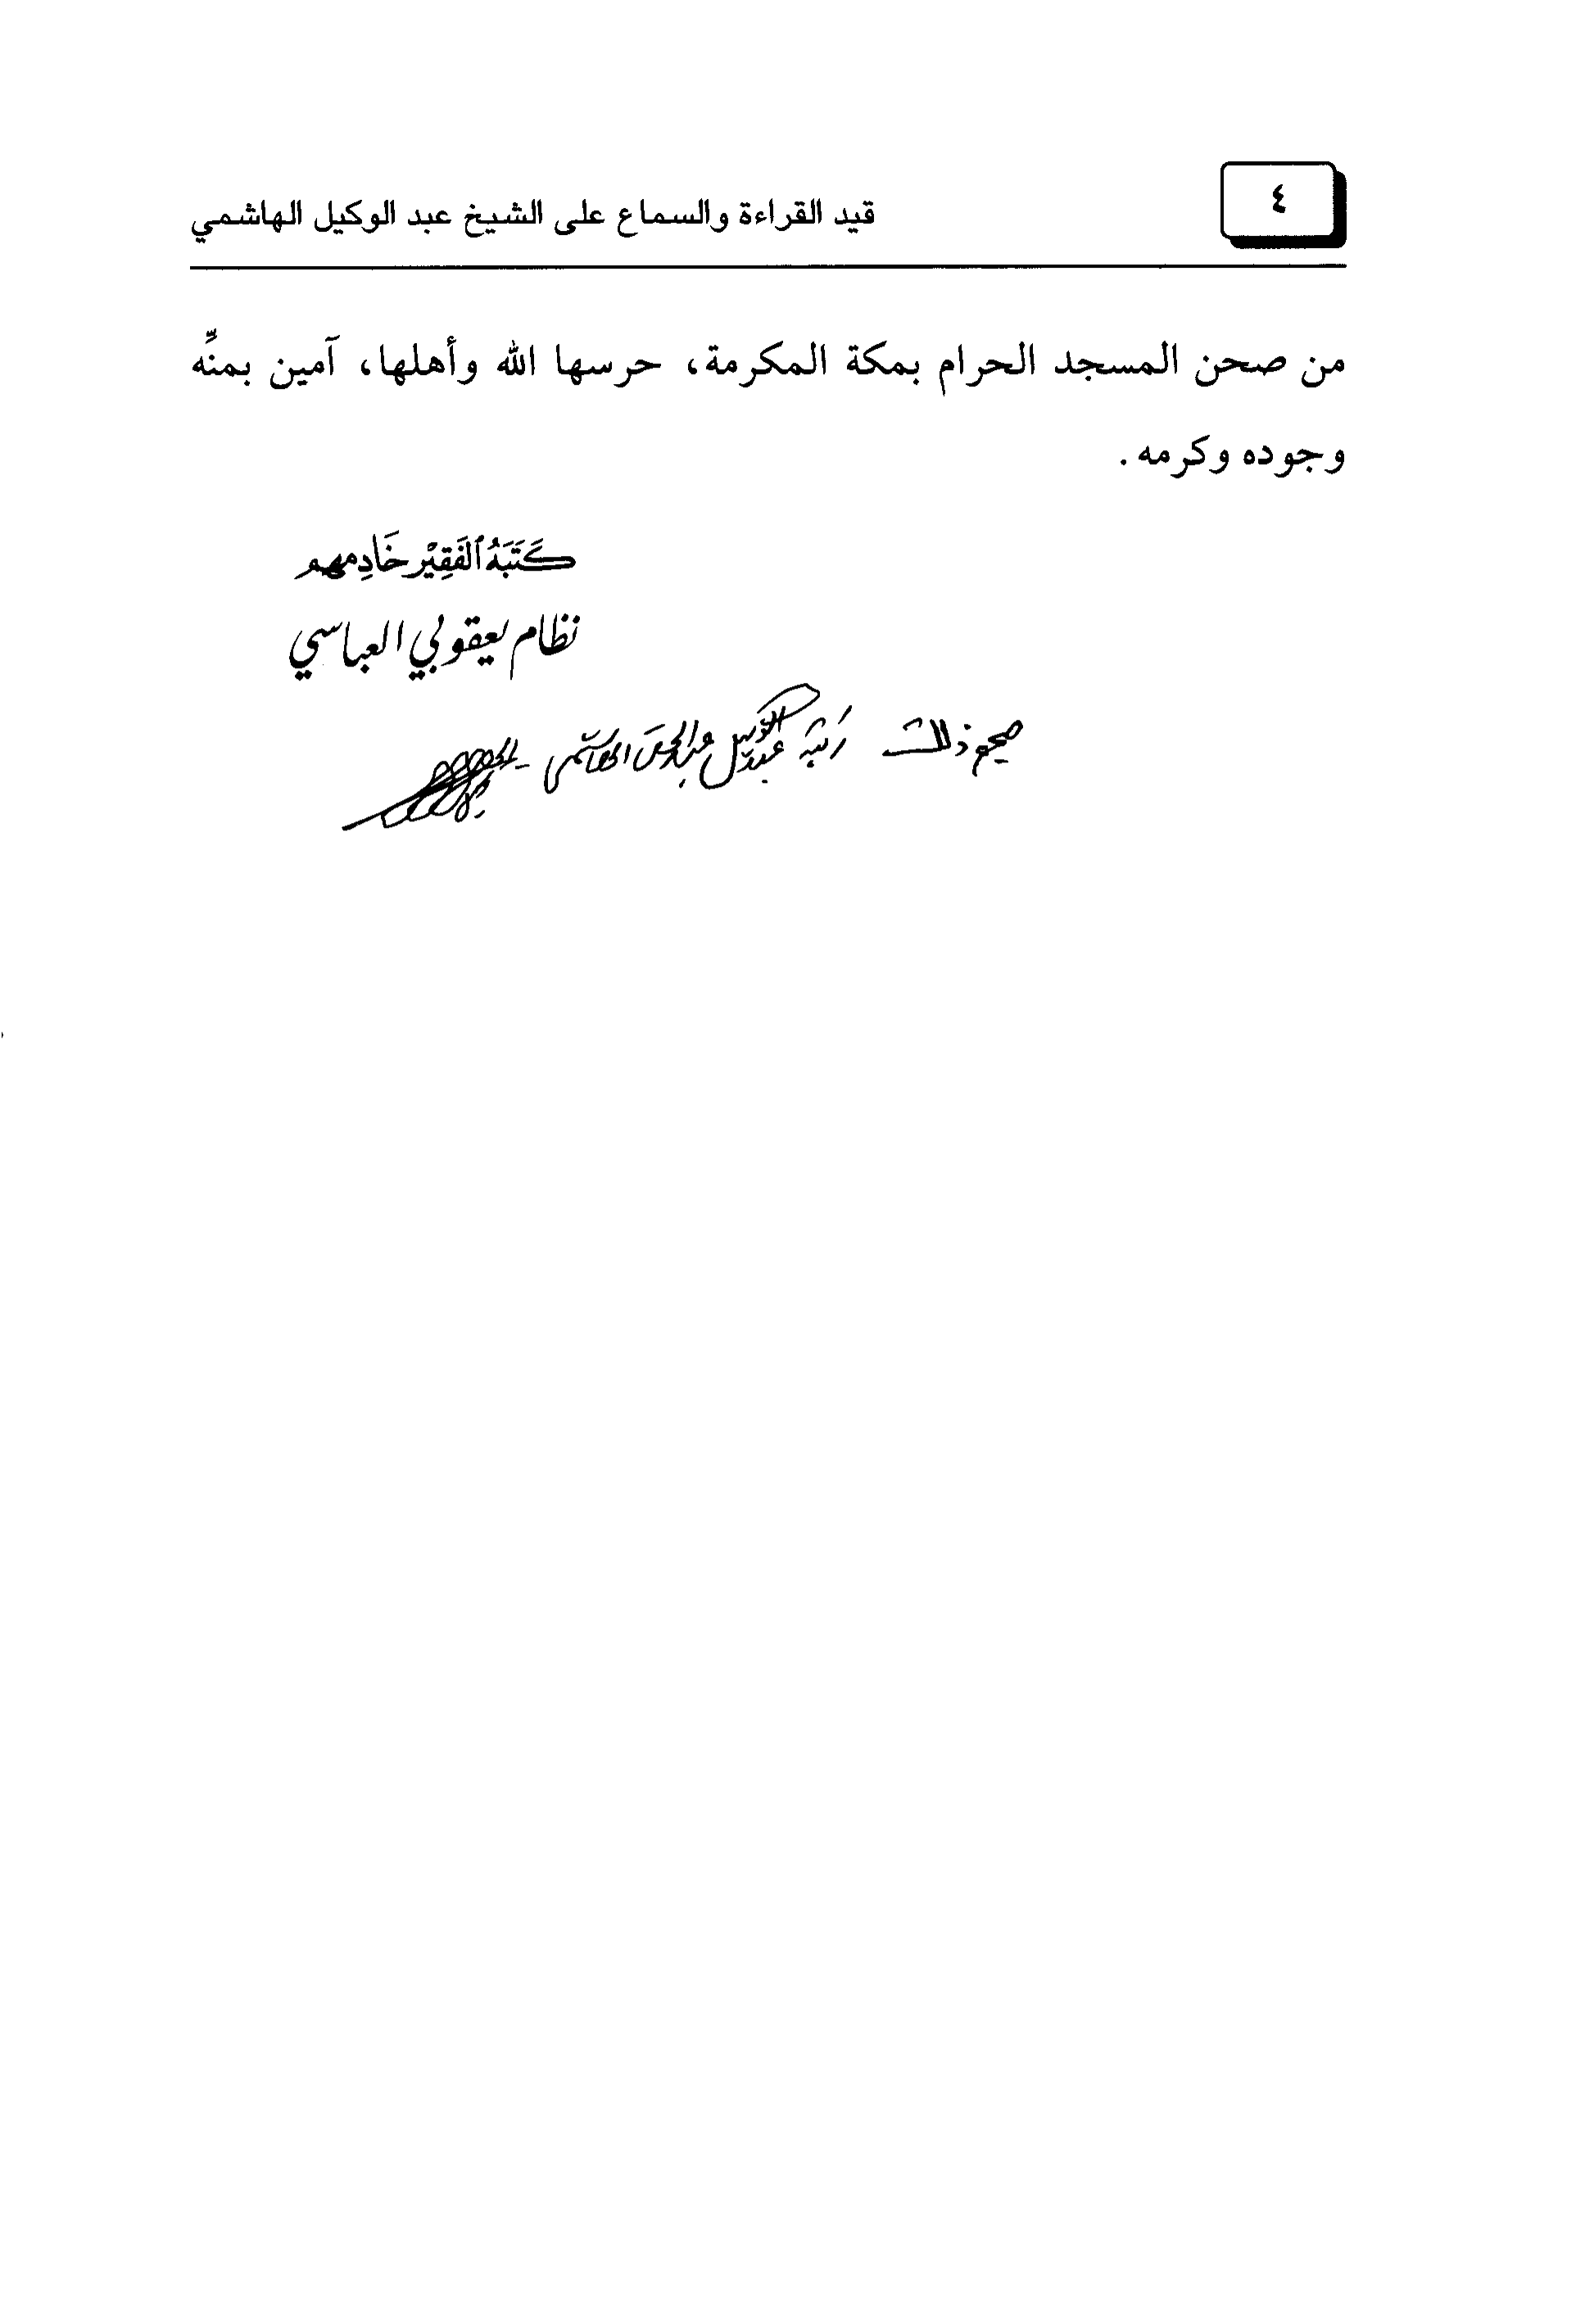 ٤
قيد القراءة والسماع على الشيخ عبد الوكيل الهاشمي
من صحن المسجد الحرام بمكة المكرمة، حرسها الله وأهلها، آمين بمنِّه
وجوده وكرمه.
كَتَبَهُ الفَقِيْر خَادِمهم
نظام يعقوبي العباسي
صحيح ذلك عبد الوكيل عبد الحق الهاشمي